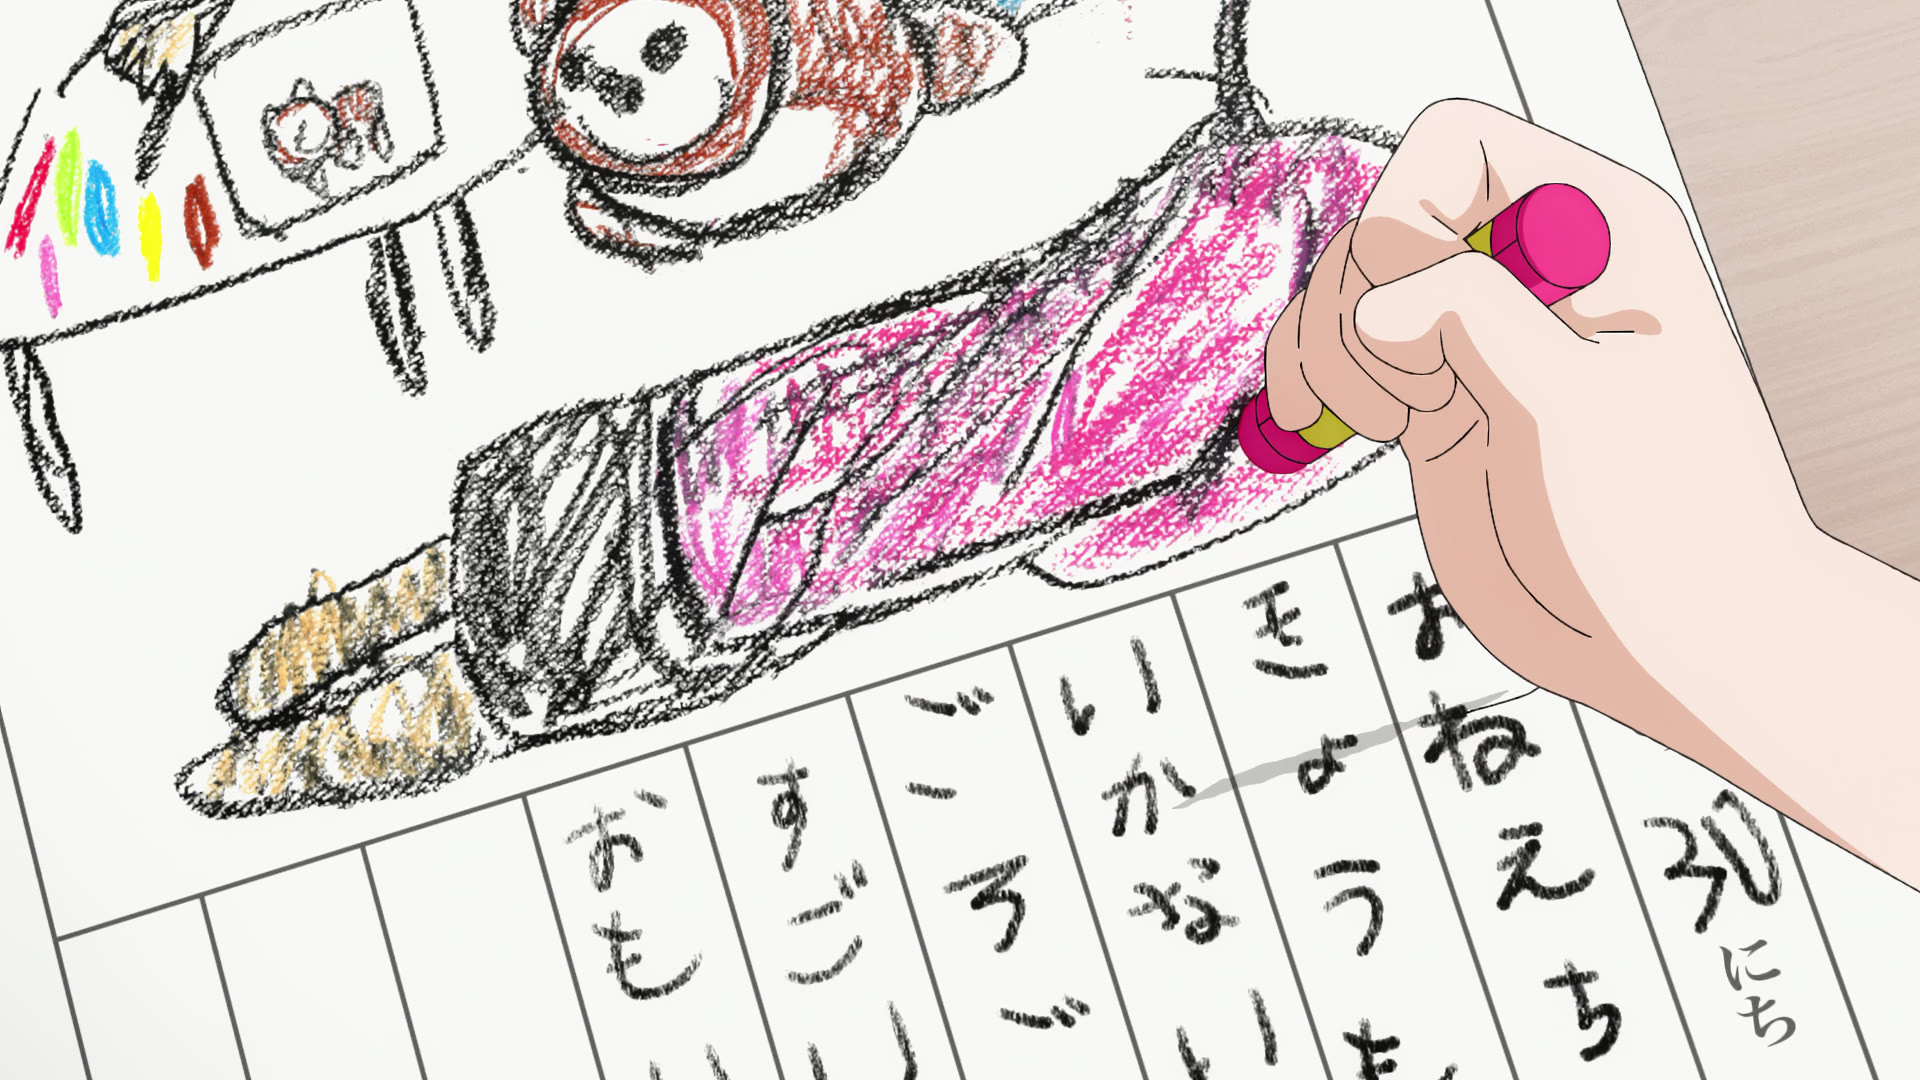 30にち
おねえち
きょうも
いかない
ごろご
すごい
おも